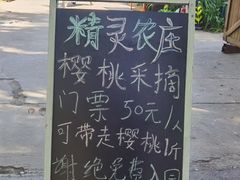 精灵农庄
樱桃采摘
门票50元/人
可带走樱桃1斤
谢绝免费入园